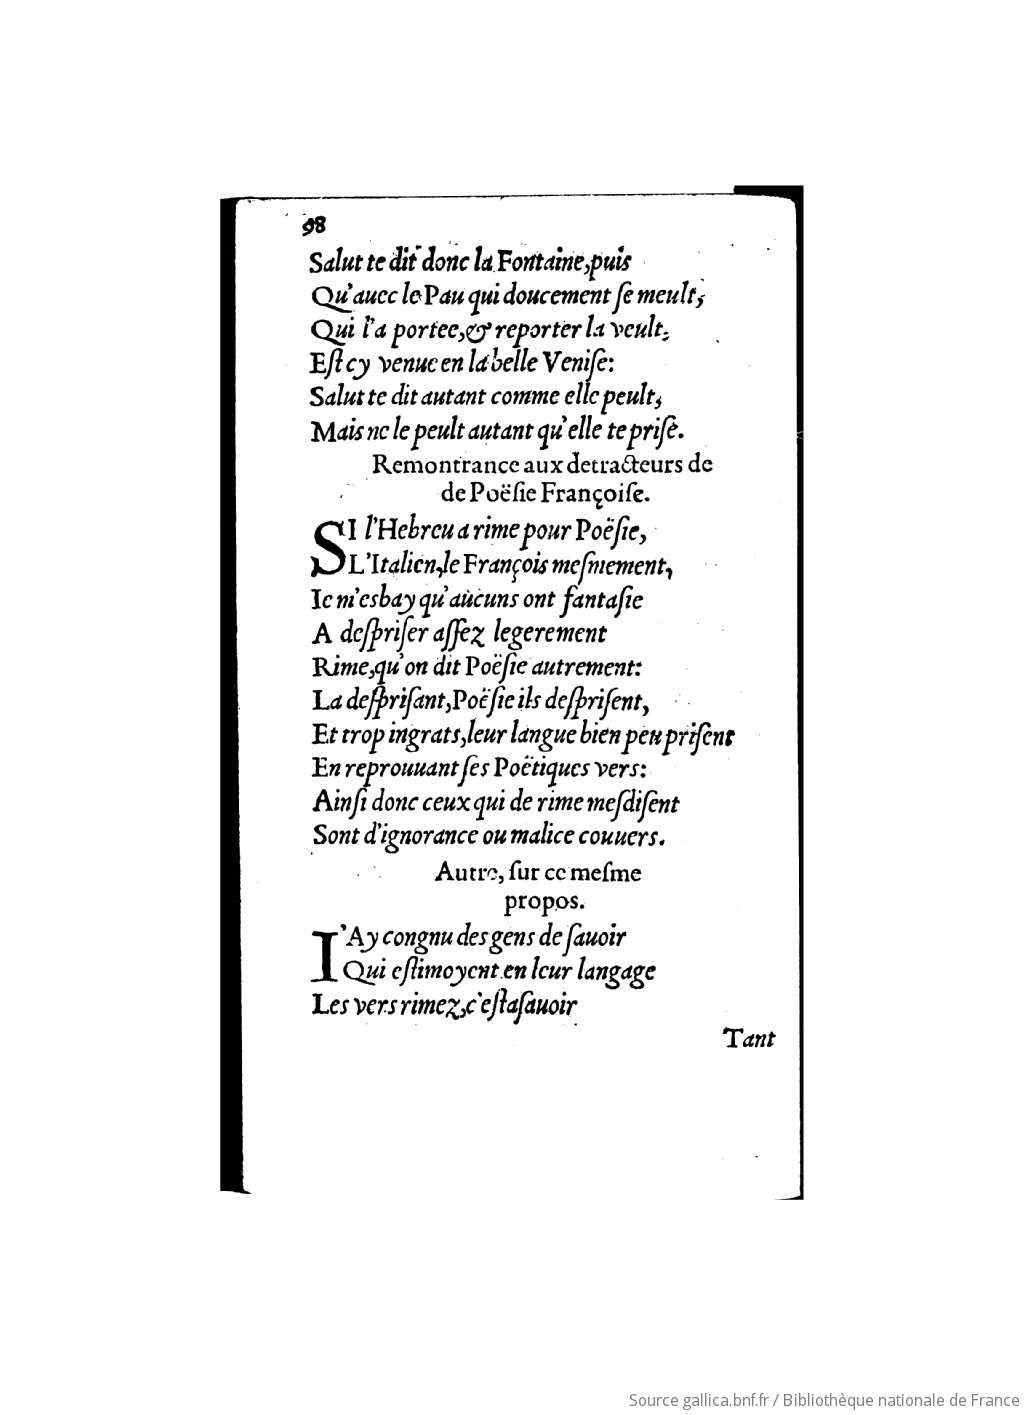 98
Salut te dit donc la Fontaine, puis
Qu'auec le Pau qui doucement ſe meult,
Qui l'a portee, & reporter la veult,
Eſt cy venue en la belle Veniſe:
Salut te dit autant comme elle peult,
Mais ne le peult autant qu'elle te priſe.
Remontrance aux detracteurs de
de Poëſie Françoiſe.
SI l'Hebreu a rime pour Poëſie,
L'Italien, le François meſmement,
Ie m'esbay qu'aucuns ont fantaſie
A deſpriſer aſſez legerement
Rime, qu'on dit Poëſie autrement:
La deſpriſant, Poëſie ils deſpriſent,
Et trop ingrats, leur langue bien peu priſent
En reprouuant ſes Poëtiques vers:
Ainſi donc ceux qui de rime meſdiſent
Sont d'ignorance ou malice couuers.
Autre, ſur ce meſme
propos.
I'Ay congnu des gens de ſauoir
Qui eſtimoyent en leur langage
Les vers rimez, c'eſtaſauoir
Tant
Source gallica.bnf.fr / Bibliothèque nationale de France